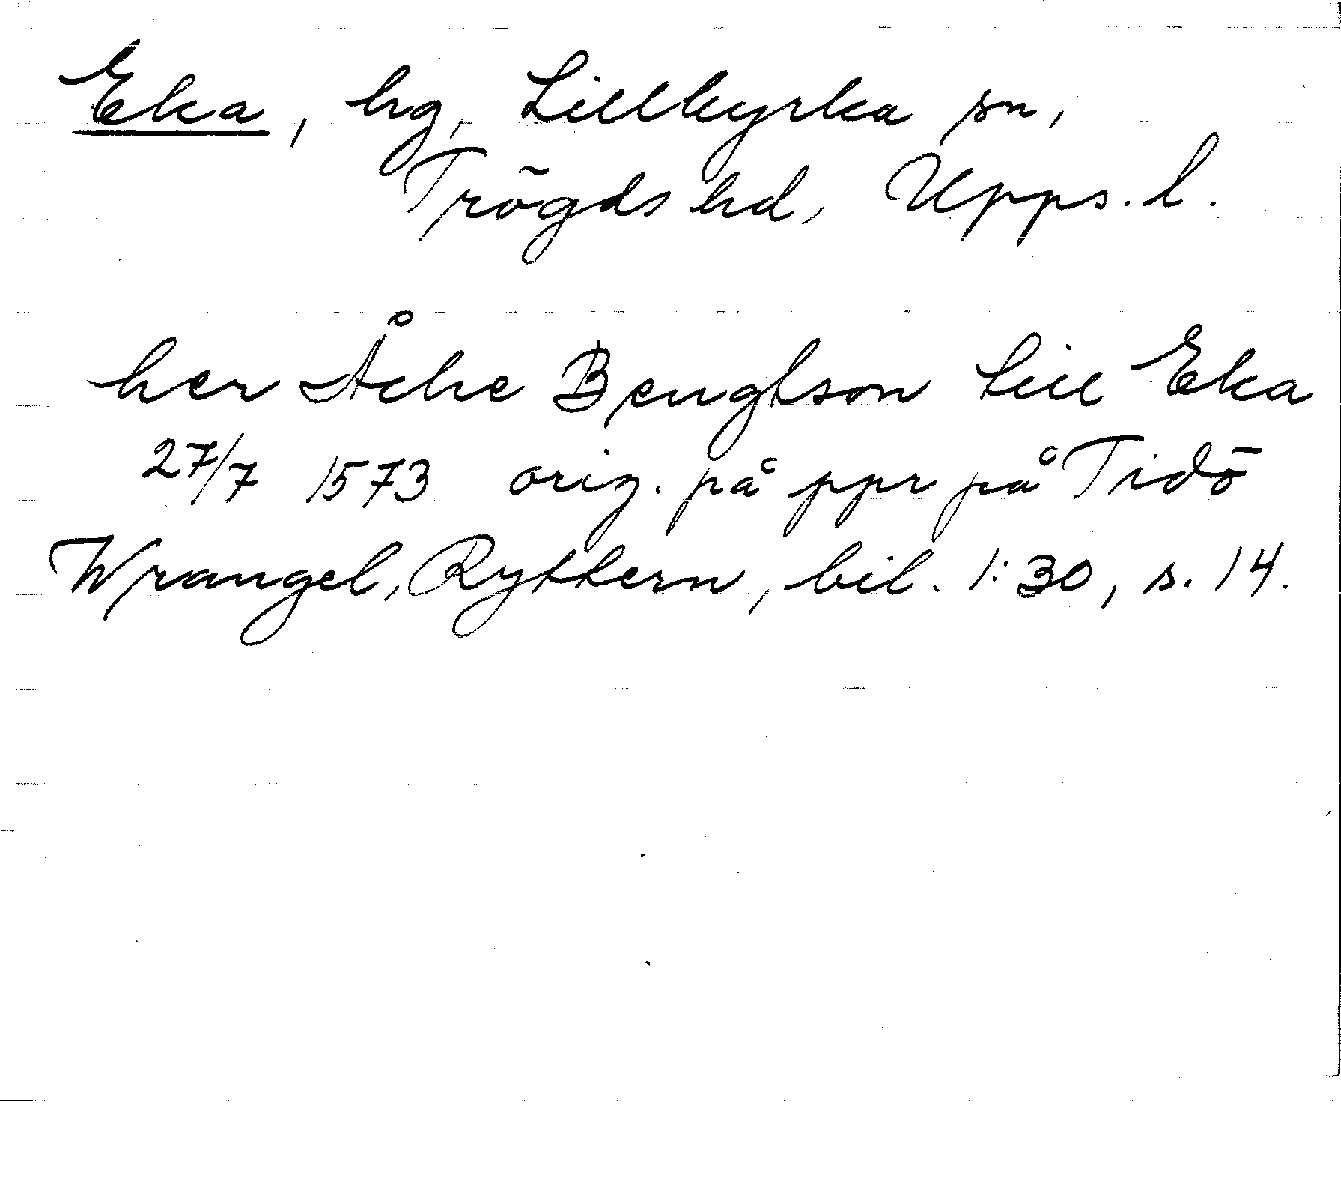 Eka, hg, Lillkyrka sn,
Trögds hd, Upps. l.
her Åche Bengtson till Eka
27/7 1573 orig. på ppr på Tidö
Wrangel, Ryttern, bil. 1:30, s. 14.